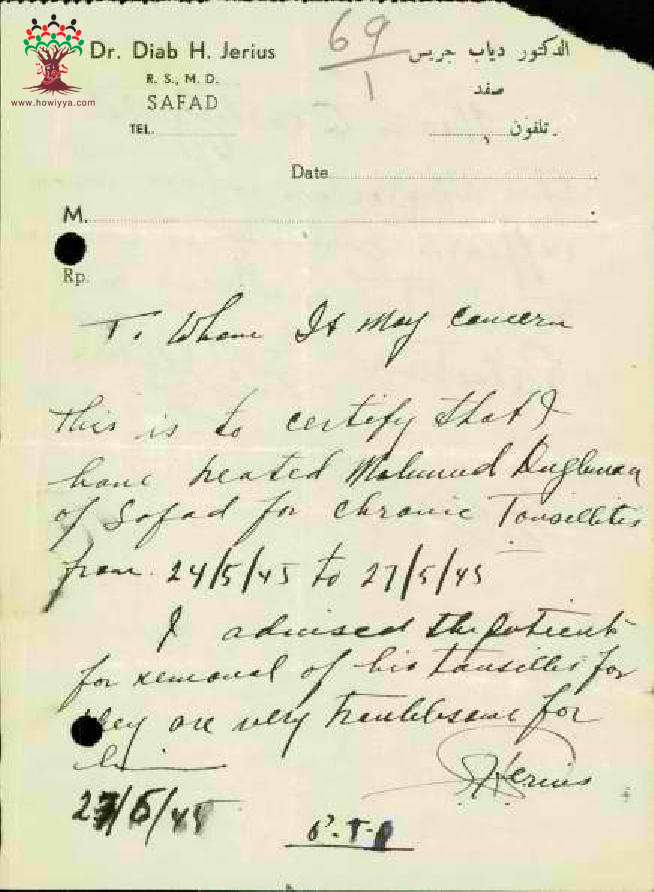 Dr. Diab H. Jerius
R. S., M. D.
SAFAD
TEL.
الدكتور دياب جريس
صفد
تلفون
69
1
www.howiyya.com
Date
M.
Rp.
To Whom It May Concern
This is to certify that I
have treated Mohmud
of Safad for chronic Tonsillitis
from 24/5/45 to 27/5/45
I advised the patient
for removal of his tonsills for
they are very troublesome for
him
Jerius
27/5/45
P.T.O